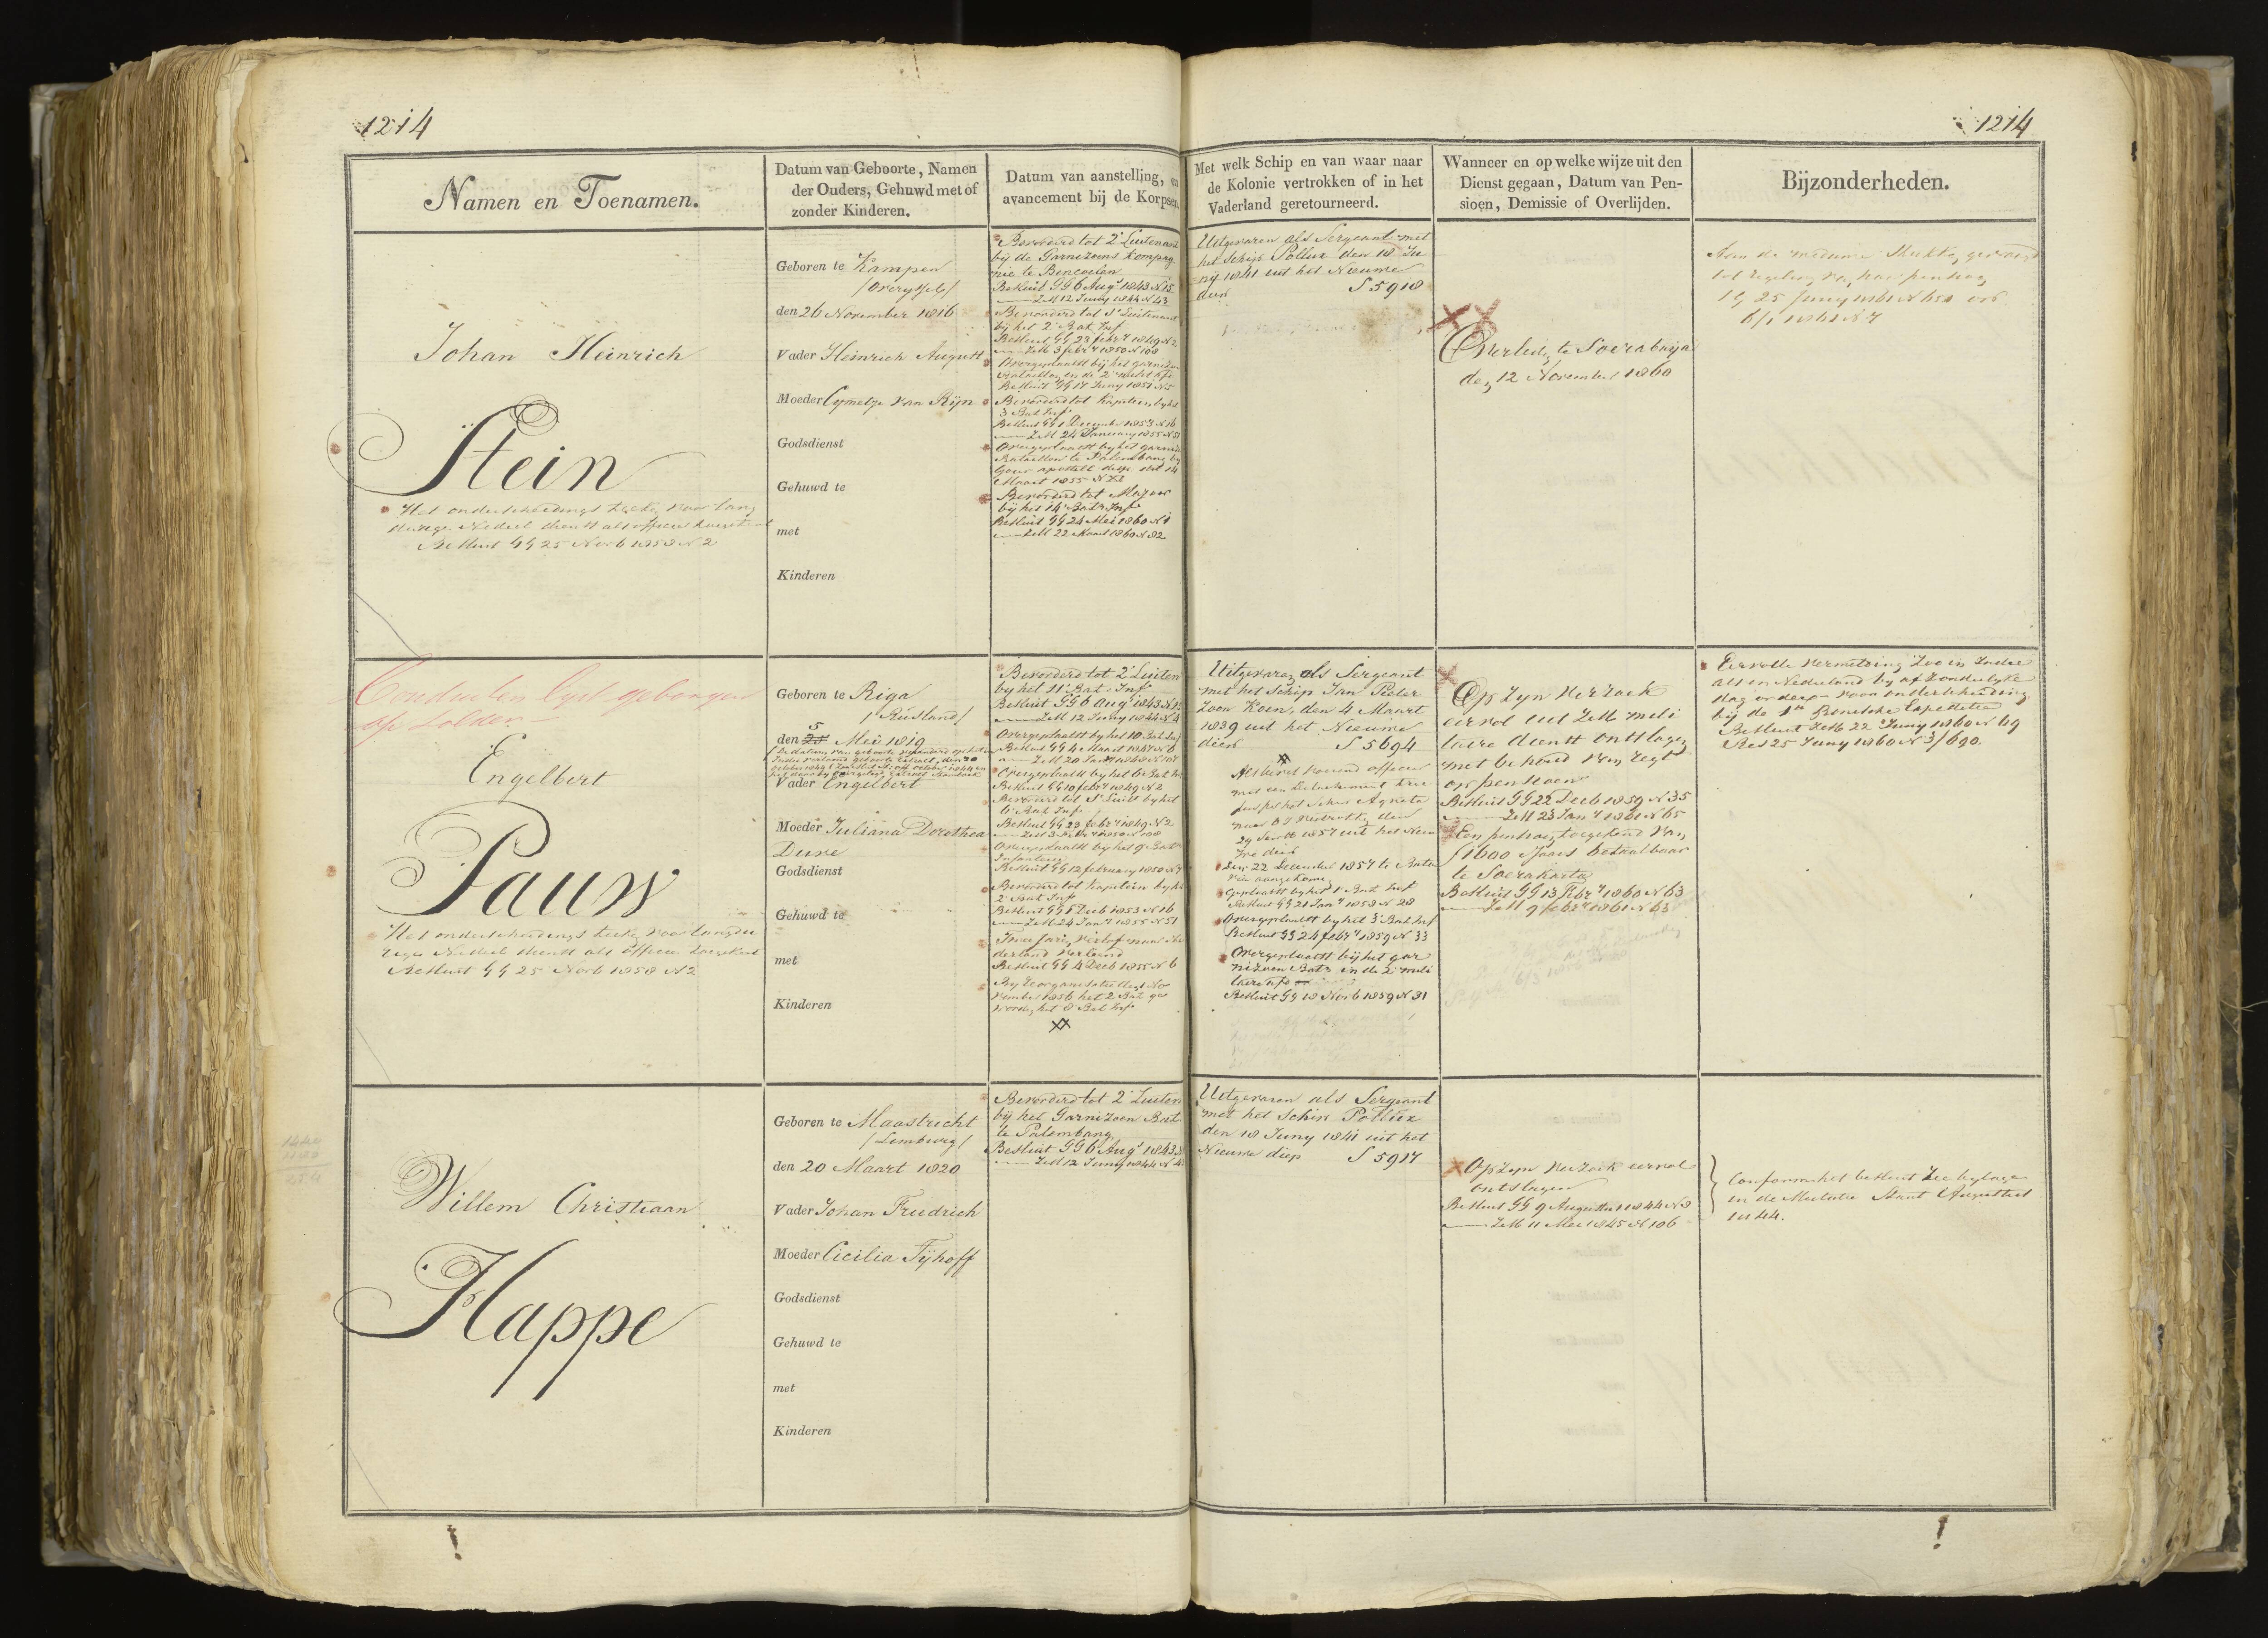 1214
1214
Namen en Toenamen.
Datum van Geboorte, Namen
der Ouders, Gehuwd met of
zonder Kinderen.
Datum van aanstelling, en
avancement bij de Korpsen.
Met welk Schip en van waar naar
de Kolonie vertrokken of in het
Vaderland geretourneerd.
Wanneer en op welke wijze uit den
Dienst gegaan, Datum van Pen-
sioen, Demissie of Overlijden.
Bijzonderheden.
Johan Heinrich
Stein
Het onderscheidings teeken voor lang
durige Nederl dienst als officier toegekend
Besluit GG 25 Novb 1858 N 2
Geboren te Kampen
/Overyssel/
den 26 November 1816
Vader Heinrich August
Moeder van Rijn
Godsdienst
Gehuwd te
met
Kinderen
Bevorderd tot 2e Luitenant
bij de Garnizoens Kompag
nie te Bencoelen
Besluit GG 6 Augt 1843 N 15
ZM 12 Juny 1844 N 43
Bevorderd tot 1e Luitenant
bij het 2e Bat Inf
Besluit GG 23 febry 1849 N 2
ZM 3 febry 1850 N 108
Overgeplaatst bij het garnizoen
bataillon in de 2e milit afd
Besluit GG 17 Juny 1851 N 5
Bevorderd tot Kapitein by het
3 Bat Inf
Besluit GG 1 December 1853 N 16
ZM 24 January 1855 N 51
Overgeplaatst by het garnizoen
Bataillon te Palembang by
Gouv apostill
Maart 1855
Bevorderd tot Majoor
bij het 14e Bat Inf
Besluit GG 24 Mei 1860 N 1
ZM 22 Maart 1860 N 82
Uitgevaren als Sergeant met
het Schip Pollux den 18 Ju
nij 1841 uit het Nieuwe
diep S 5918
Overleden te Soerabaija
den 12 November 1860
Aan de weduwe
tot regeling van haar pensioen
25 Juny 1861 N 650
Conduite lyst geborgen
op zolder
Engelbert
Pauw
Het onderscheidings teeken voor langdu
rige Nederl dienst als officier toegekend
Besluit GG 25 Novb 1858 N 2
Geboren te Riga
/Rusland/
5
den 25 Mei 1819
Vader Engelbert
Moeder Juliana Dorothea
Godsdienst
Gehuwd te
met
Kinderen
Bevorderd tot 2e Luiten
by het 11e Bat Inf
Besluit GG 6 Augt 1843 N 15
ZM 12 Juny 1844 N
Overgeplaatst by het 10 Bat Inf
Besluit GG 4 Maart 1847 N 6
ZM 20 Jany 1848 N 108
Overgeplaatst by het 6e Bat Inf
Besluit GG 10 febry 1849 N 2
Bevorderd tot 1e Luit by het
6e Bat Inf
Besluit GG 23 febry 1849 N 2
ZM 3 febry 1850 N 108
Overgeplaatst by het 9e Bat
Infanterie
Besluit GG 12 february 1850 N
Bevorderd tot Kapitein by het
2e Bat Inf
Besluit GG 1 Decb 1853 N 16
ZM 24 Jany 1855 N 51
Tweejarig verlof naar Ne
derland verleend
Besluit GG 4 Decb 1855 N 6
By de organisatie
vember 1856 het 2 Bat ge
worden het 8 Bat Inf
Uitgevaren als Sergeant
met het Schip Jan Pieter
Zoon Koen, den 4 Maart
1839 uit het Nieuwe
diep S 5694
officier
met een detachement
het Schip Agneta
naar
1857 uit het Nieu
we diep
Den 22 December 1857 te Bata
via aangekomen
Geplaatst by het 1e Bat Inf
Besluit GG 21 Jany 1858 N 28
Overgeplaatst by het 3e Bat Inf
Besluit GG 24 febry 1859 N 33
Overgeplaatst bij het gar
nizoen Bat in de 2e mili
taire afd
Besluit GG 18 Novb 1859 N 31
Op zyn verzoek
eervol uit ZM mili
taire dienst ontslagen
met behoud van regt
op pensioen
Besluit GG 22 Decb 1859 N 35
ZM 23 Jany 1861 N 65
Een pensioen toegekend van
f 1600 Jaars betaalbaar
te Soerakarta
Besluit GG 13 febry 1860 N 63
ZM 9 febry 1861 N 63
Eervolle vermelding zoo in Indie
als in Nederland by afzonderlyke
dagorders voor onderscheiding
bij de 1e Bonische Expeditie
Besluit ZM 22 Juny 1860 N 69
Res 25 Juny 1860 N 3/690
Willem Christiaan
Happe
Geboren te Maastricht
/Limburg/
den 20 Maart 1820
Vader Johan Friedrich
Moeder Cicilia Tijhoff
Godsdienst
Gehuwd te
met
Kinderen
Bevorderd tot 2e Luiten
bij het Garnizoen Bat
te Palembang
Besluit GG 6 Augt 1843
ZM 12 Juny 1844 N
Uitgevaren als Sergeant
met het Schip Pollux
den 18 Juny 1841 uit het
Nieuwe diep S 5917
Op zyn verzoek eervol
ontslagen
Besluit GG 9 Augustus 1844 N 8
ZM 11 Mei 1845 N 106
Conform het besluit zie bylage
in de Mutatie Staat Augustus
1844.